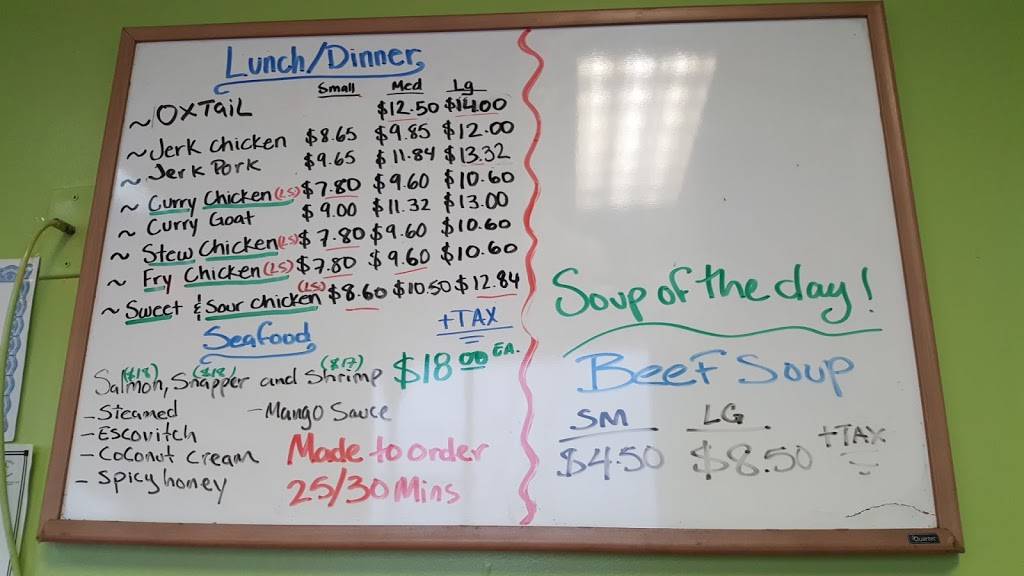 Lunch/Dinner
Small Med Lg
~ OXTAIL $12.50 $14.00
~ Jerk chicken $8.65 $9.85 $12.00
~ Jerk Pork $9.65 $11.84 $13.32
~ Curry Chicken (LS) $7.80 $9.60 $10.60
~ Curry Goat $9.00 $11.32 $13.00
~ Stew Chicken (LS) $7.80 $9.60 $10.60
~ Fry Chicken (LS) $7.80 $9.60 $10.60
~ Sweet & Sour chicken (LS) $8.60 $10.50 $12.84
+TAX
Seafood
($18) ($18) ($17)
Salmon, Snapper and Shrimp $18.00 EA.
- Steamed - Mango Sauce
- Escovitch
- Coconut Cream
- Spicy honey
Made to order
25/30 Mins
Soup of the day!
Beef Soup
SM LG
$4.50 $8.50 +TAX
Quartet